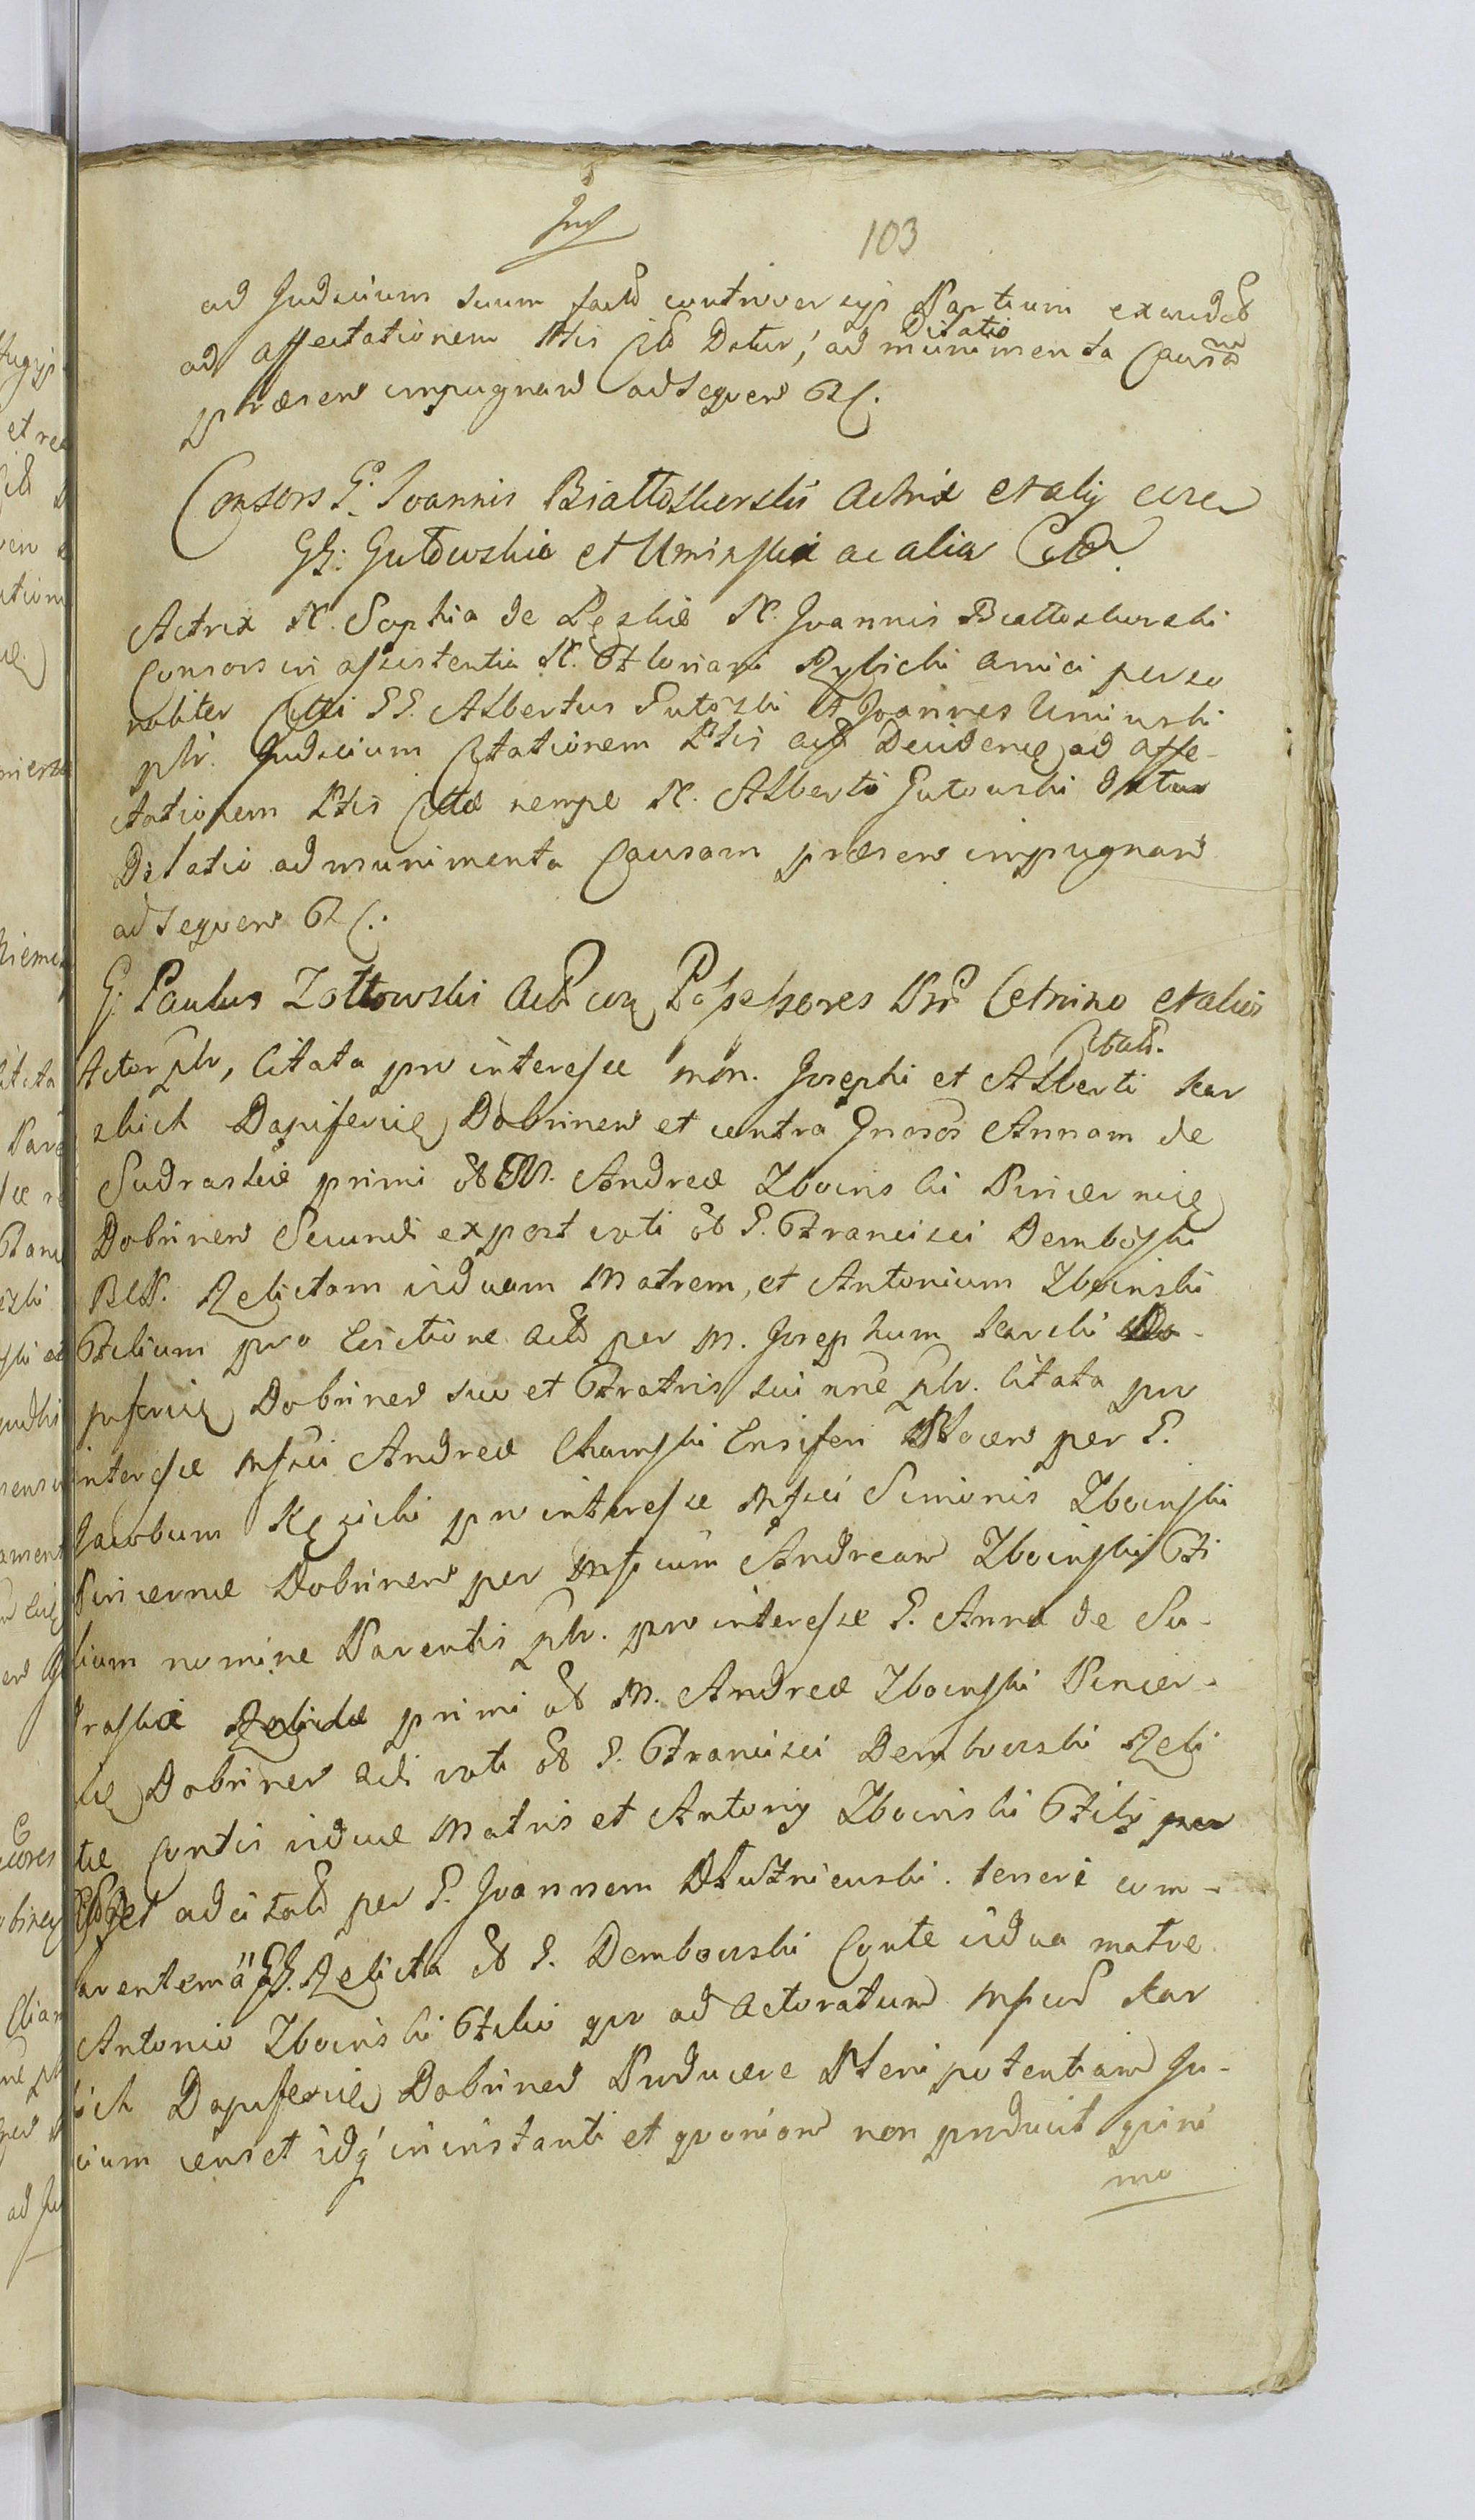 103
ad Judicium suum facta controversijs Partium exaudit
ad affectationem Ptis Cit Datur, ad munimenta Causam
Dilatio
praesen impugnan adsequen
Consors G. Joannis Białłoskurski Actrix et alij cum
GG. Gutowskie et Uminskie ac alia Cit
Actrix N. Sophia de N. Joannis Białłoskurski
Consors in assistentia N. Floriani Rybicki amici perso
naliter Citti GG. Albertus Gutowski et Joannes Uminski
plr. Judicium Citationem Ptis Act Deciden ad affe-
ctationem Ptis Citae nempe N. Alberti Gutowski datur
Dilatio ad munimenta Causam praesen impugnan
adsequen
G. Paulus Zołtowski Act cum Possessores Cetnino et alios
Citat.
Actor plr, Citata pro interesse Mm. Josephi et Alberti Kar
skich Dapiferic Dobrinen et contra Gnosos Annam de
Sudraskie primi ol M. Andreae Zboinski Pincernic
Dobrinen Secundi expost voti ol G. Francisci Dembowski
Relictam viduam Matrem, et Antonium Zboinski
Filium pro Evictione Act per M. Josephum Karski Da-
piferic Dobrinen suo et Fratris sui nne plr. Citata pro
interesse Mfici Andreae Chamski Ensiferi Plocen per G.
Jacobum Kęsicki pro interesse Mfici Simonis Zboinski
Pincernae Dobrinen per Mficum Andream Zboinski Fi
lium nomine Parentis plr. pro interesse G. Anna de Su-
draskie Relictae primi ol M. Andreae Zboinski Pincer-
Dobrinen 2di voti ol G. Francisci Dembowski Reli
tae Contis viduae Matris et Antonij Zboinski Filij per
adcitat per G. Joannem Dłużniewski. teneri com-
arentem a GG. Relicta ol G. Dembowski Conte vidua matre
Antonio Zboinski Filio pro ad Actoratum Mficor Kar
ich Dapiferic Dobrinen Producere Plenipotentiam Ju-
cium censet idq in instanti et quoniam non producit
mo